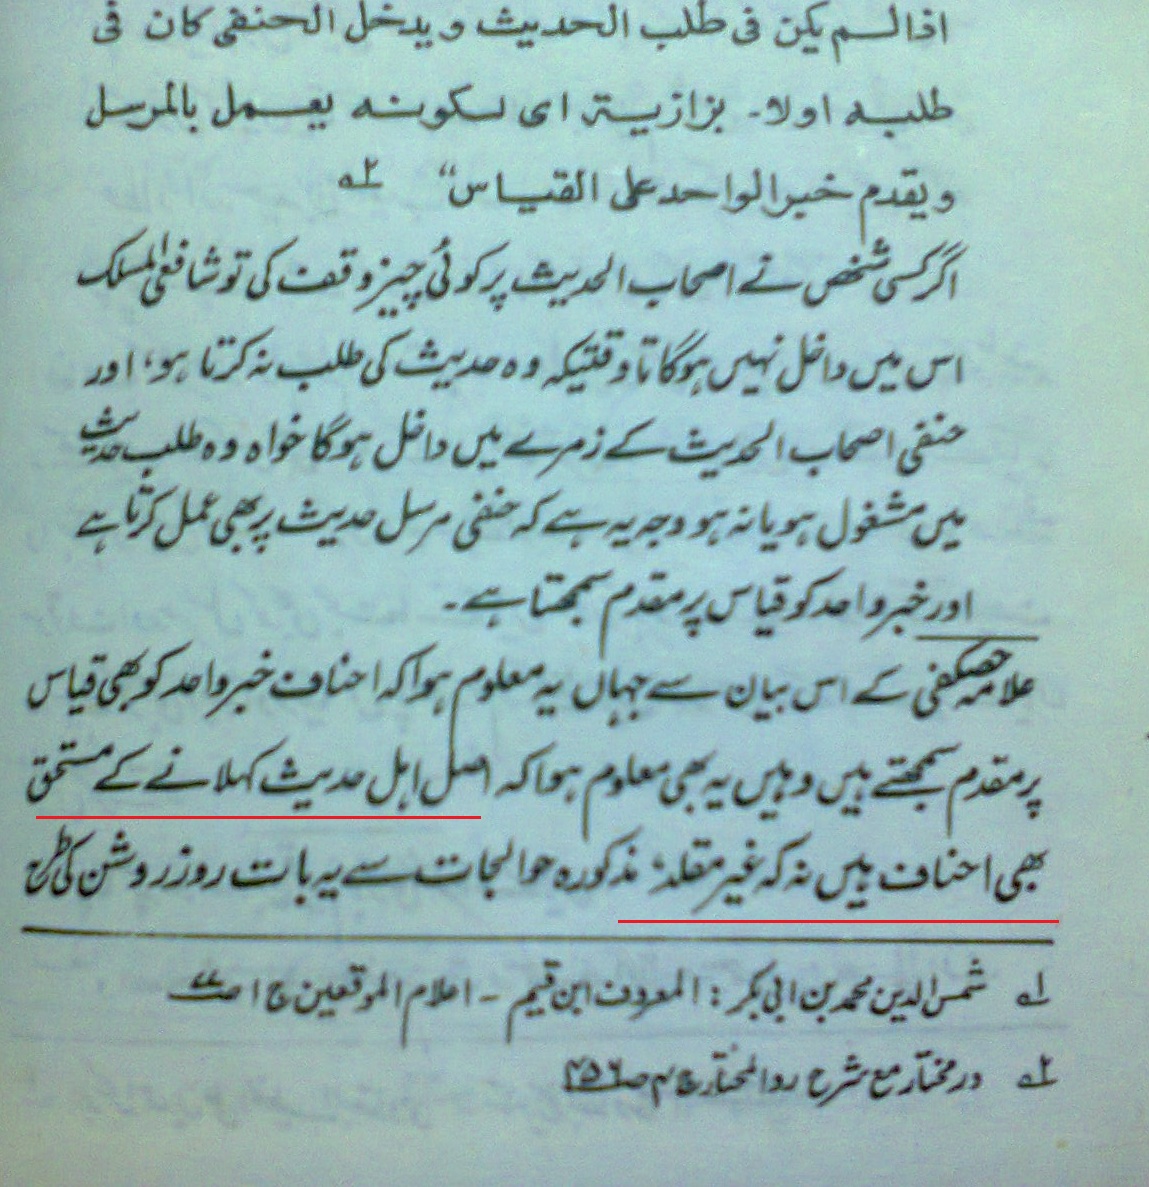 اذا لم یکن فی طلب الحدیث ویدخل الحنفی کان فی
طلبہ اولا۔ بزازیۃ ای لکونہ یعمل بالمرسل
ویقدم خبر الواحد علی القیاس“ ۲ھ
اگر کسی شخص نے اصحاب الحدیث پر کوئی چیز وقف کی تو شافعی المسلک
اس میں داخل نہیں ہوگا تا وقتیکہ وہ حدیث کی طلب نہ کرتا ہو، اور
حنفی اصحاب الحدیث کے زمرے میں داخل ہوگا خواہ وہ طلب حدیث
میں مشغول ہو یا نہ ہو وجہ یہ ہے کہ حنفی مرسل حدیث پر بھی عمل کرتا ہے
اور خبر واحد کو قیاس پر مقدم سمجھتا ہے۔
علامہ حصکفی کے اس بیان سے جہاں یہ معلوم ہوا کہ احناف خبر واحد کو بھی قیاس
پر مقدم سمجھتے ہیں وہیں یہ بھی معلوم ہوا کہ اصل اہل حدیث کہلانے کے مستحق
بھی احناف ہیں نہ کہ غیر مقلد، مذکورہ حوالجات سے یہ بات روز روشن کی طرح
۱ھ شمس الدین محمد بن ابی بکر : المعروف ابن قیم ۔ اعلام الموقعین ج ۱ ص۷۷
۲ھ در مختار مع شرح رد المحتار ج ۴ ص۴۵۶